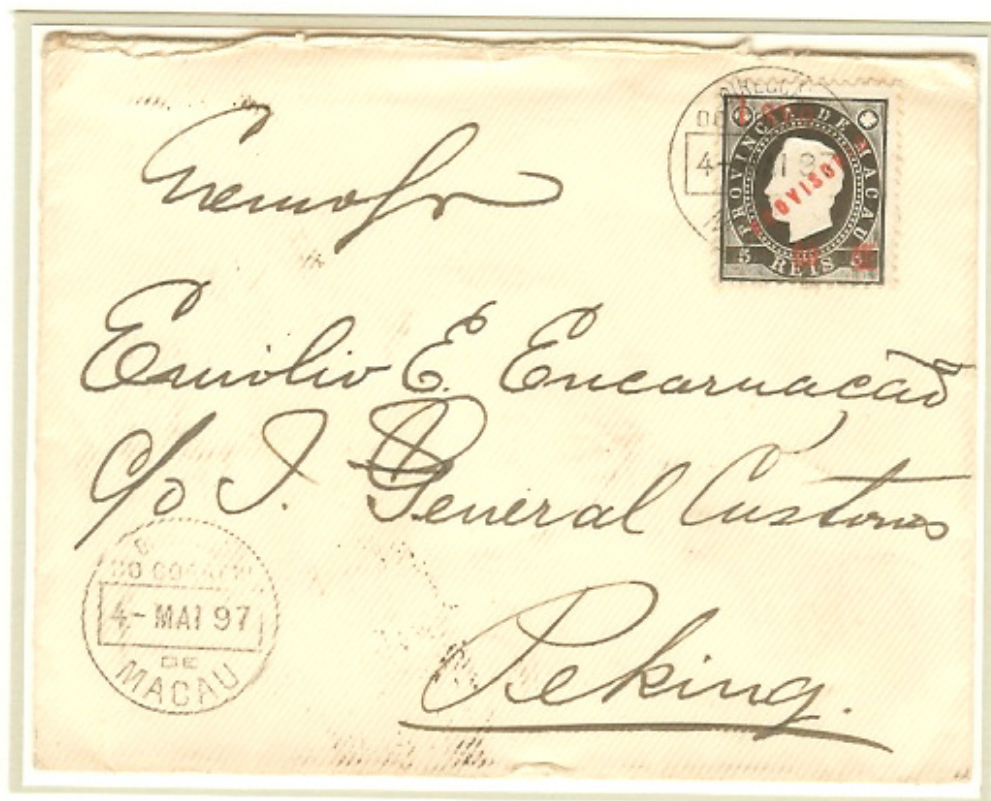 PROVINCIA DE MACAU
PROVISORIO
5 REIS 5
4- MAI 97
Exmo Sr
Emilio E. Encarnação
c/o I. General Customs
Peking.
DO CORREIO
4- MAI 97
DE
MACAU